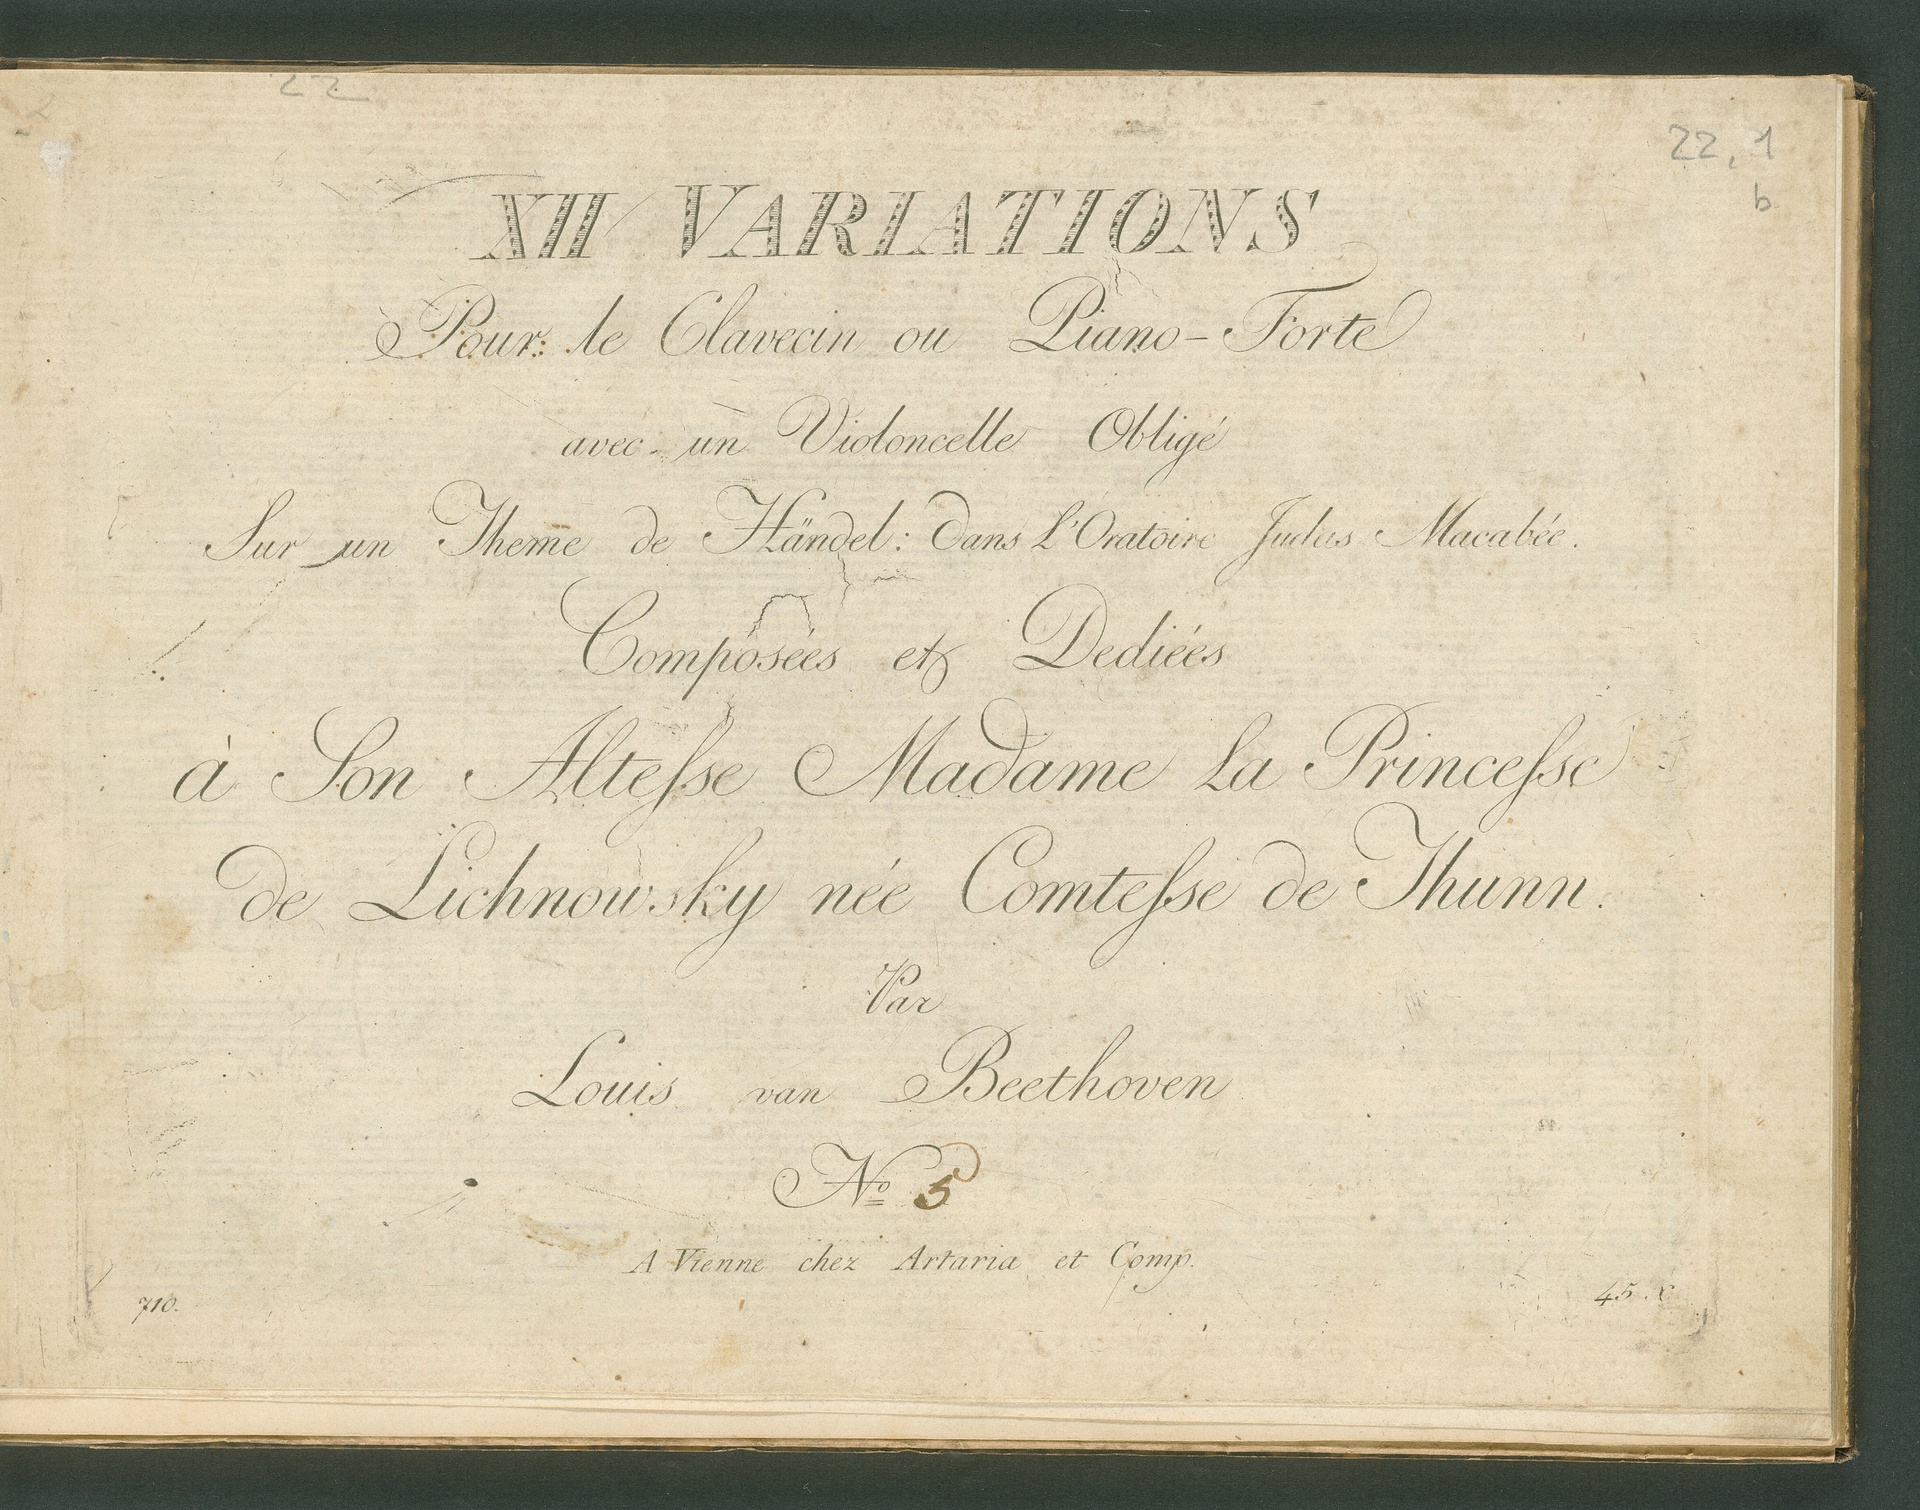 22
22, 1
b
XII VARIATIONS
Pour: le Clavecin ou Piano-Forte
avec un Violoncelle Obligé
Sur un Theme de Händel: dans L'Oratoire Judas Macabée.
Composées et Dediées
à Son Altesse Madame La Princesse
de Lichnowsky née Comtesse de Thunn.
Par
Louis van Beethoven
No 5
A Vienne chez Artaria et Comp.
710.
45. x